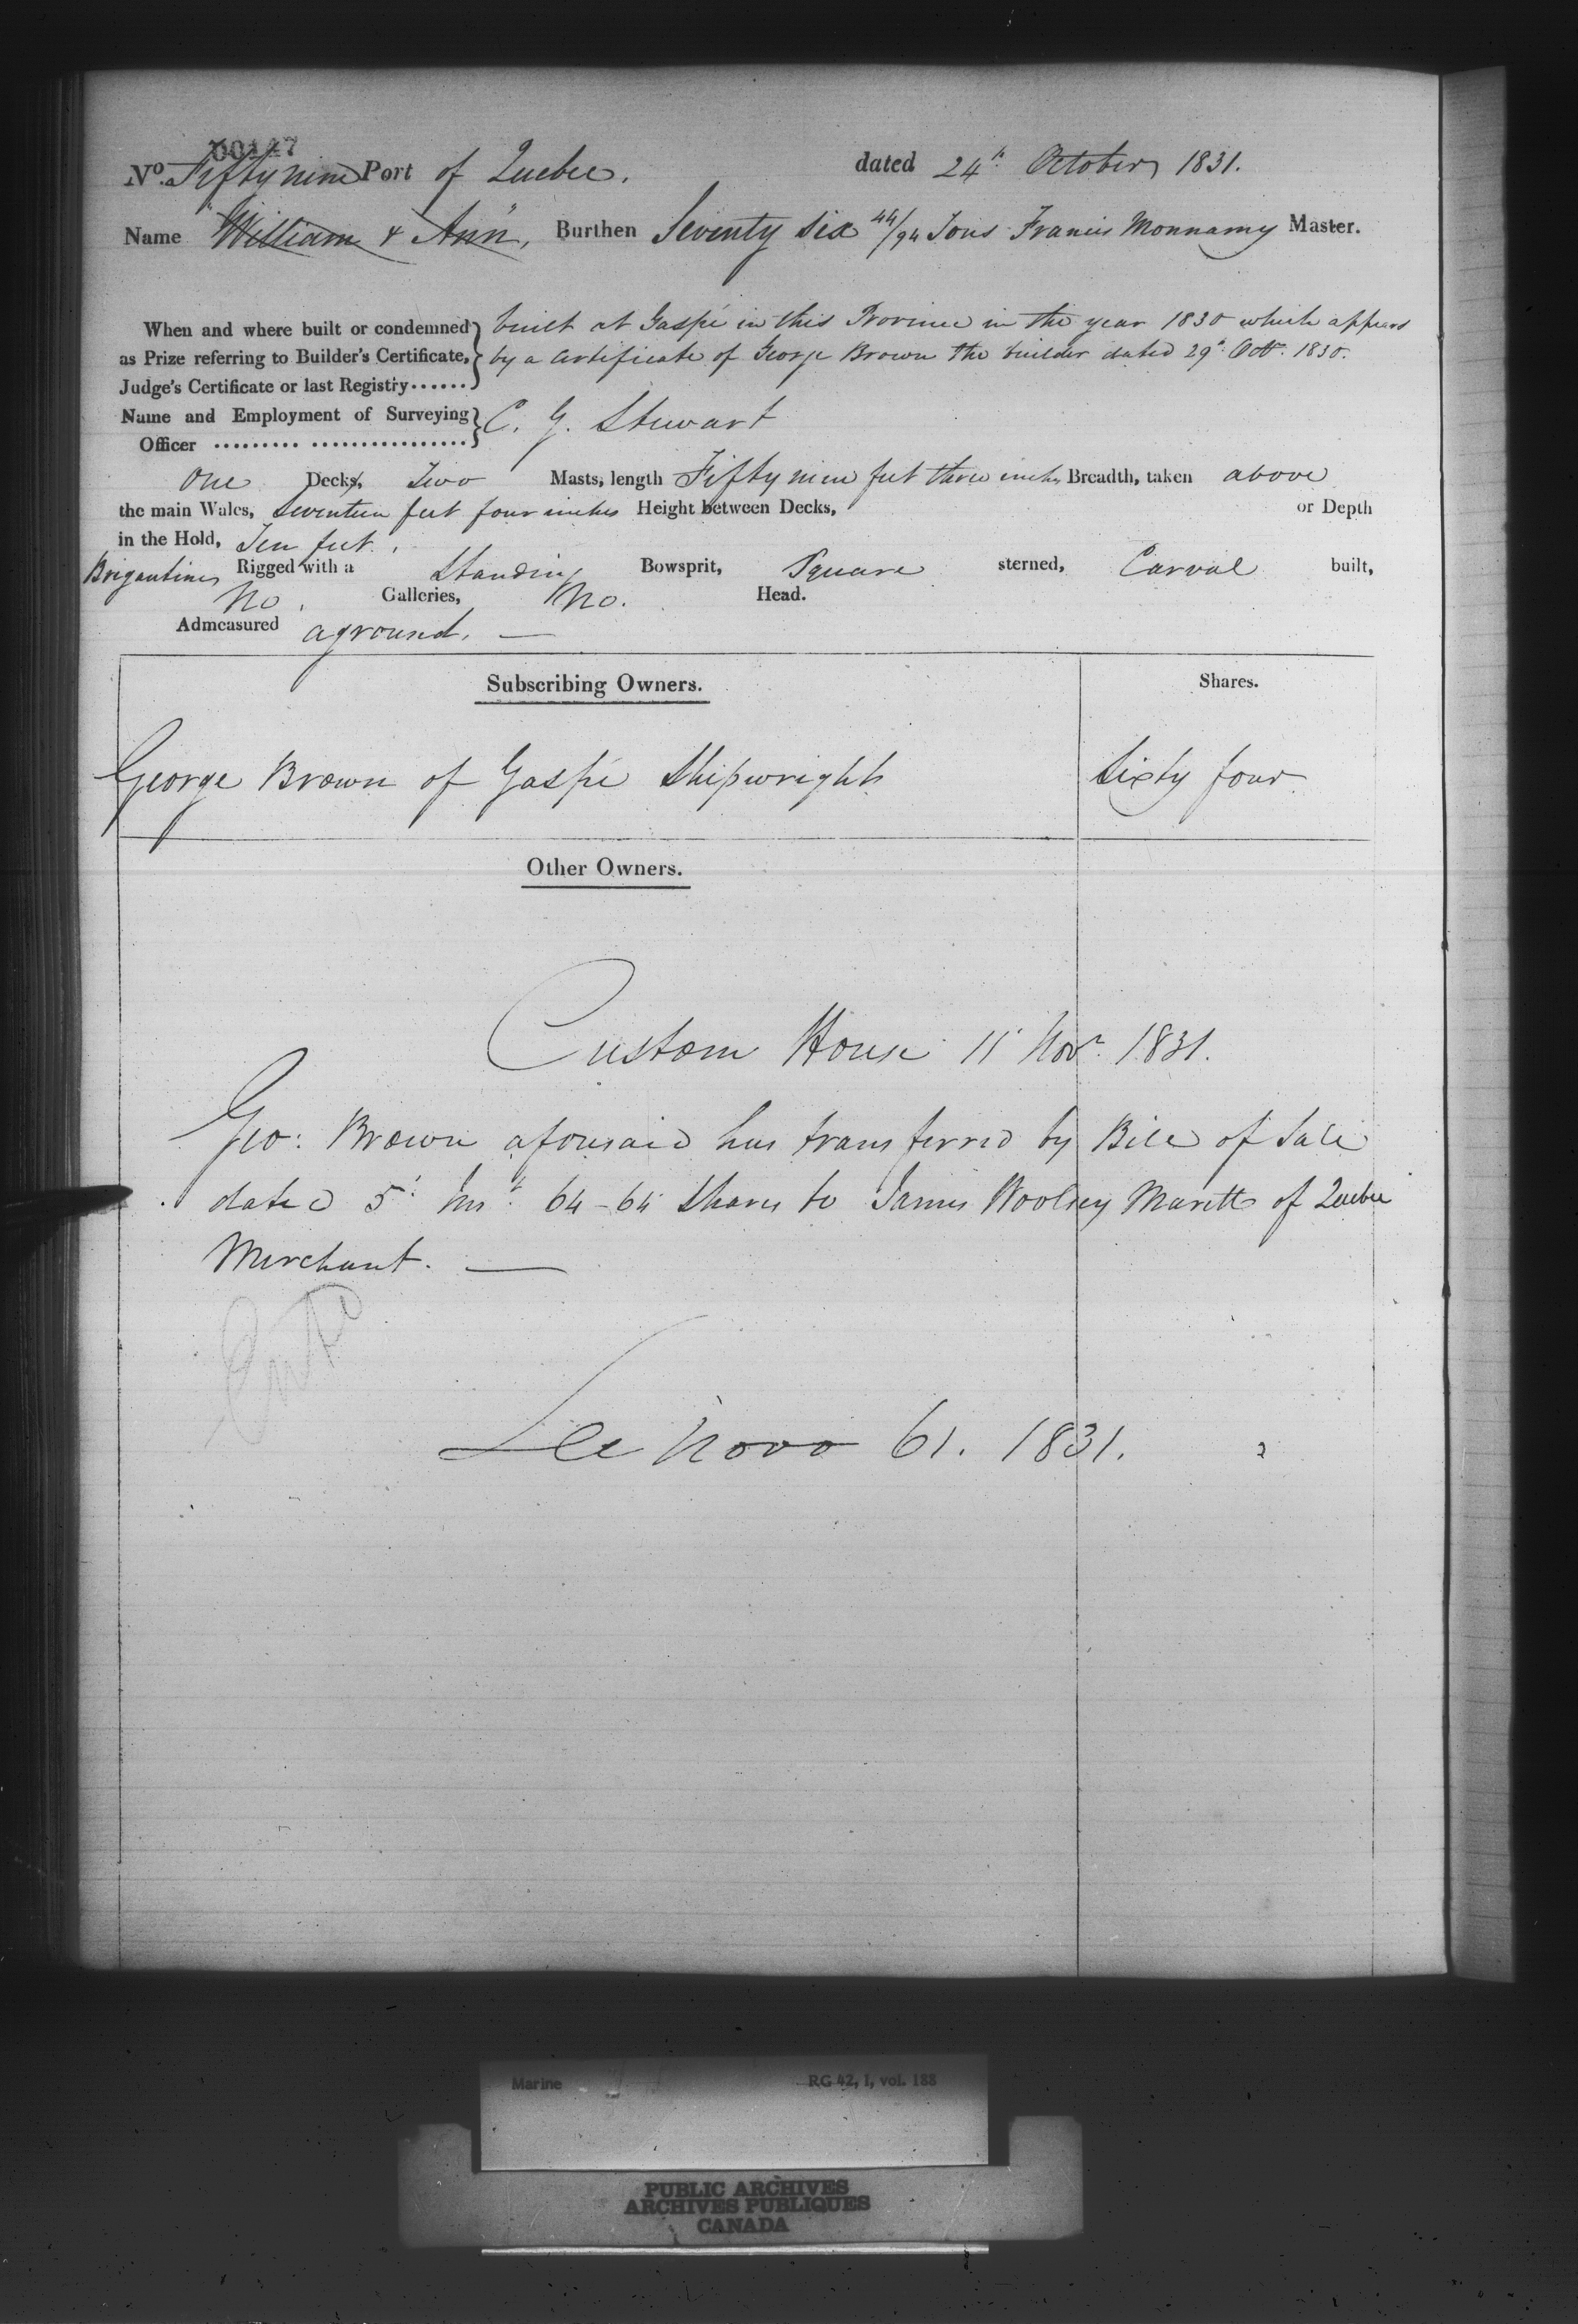 00127
No. Fifty nine Port of Quebec. dated 24th October 1831.
Name "William & Ann", Burthen Seventy six 44/94 Tons Francis Monnamy Master.
When and where built or condemned built at Gaspé in this Province in the year 1830 which appears
as Prize referring to Builder's Certificate, by a Certificate of George Brown the builder dated 29th Octr. 1830.
Judge's Certificate or last Registry......
Name and Employment of Surveying C. G. Stewart
Officer ......... ................
One Decks, Two Masts, length Fifty nine feet three inches Breadth, taken above
the main Wales, Seventeen feet four inches Height between Decks, or Depth
in the Hold, Ten feet.
Brigantine Rigged with a Standing Bowsprit, Square sterned, Carvel built,
No. Galleries, No. Head.
Admeasured aground. —
Subscribing Owners. Shares.
George Brown of Gaspé Shipwright Sixty four
Other Owners.
Custom House 11 Novr. 1831.
Geo: Brown aforesaid has transferred by Bill of Sale
dated 5th Inst. 64-64 Shares to James Woolsey Marett of Quebec
Merchant. —
De Novo 61. 1831.
Marine RG 42, I, vol. 188
PUBLIC ARCHIVES
ARCHIVES PUBLIQUES
CANADA